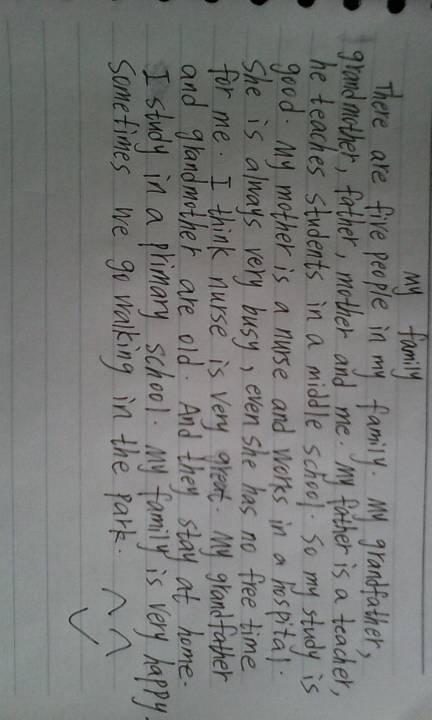 My family
There are five people in my family. My grandfather,
grandmother, father, mother and me. My father is a teacher,
he teaches students in a middle school. So my study is
good. My mother is a nurse and works in a hospital.
She is always very busy, even she has no free time
for me. I think nurse is very great. My grandfather
and grandmother are old. And they stay at home.
I study in a primary school. My family is very happy.
Sometimes we go walking in the park.